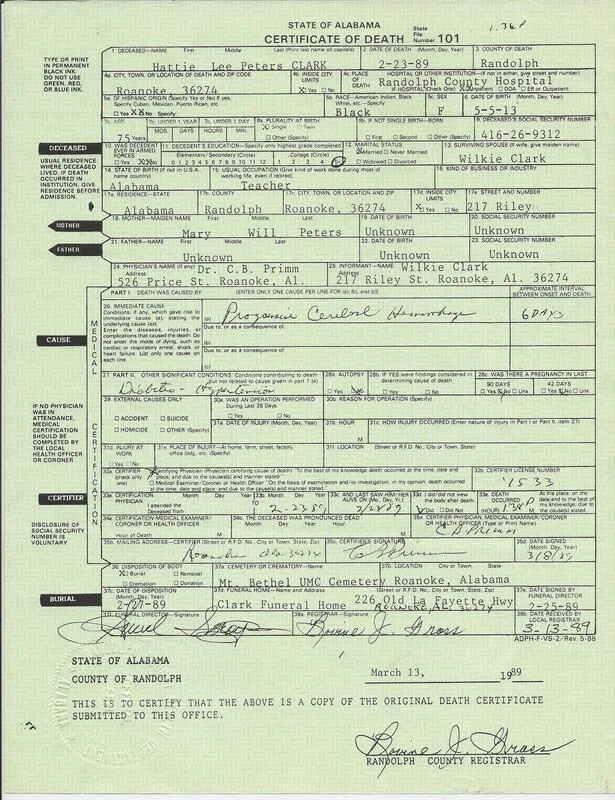 STATE OF ALABAMA
CERTIFICATE OF DEATH State File Number 101
1.36P
TYPE OR PRINT IN PERMANENT BLACK INK. DO NOT USE GREEN, RED, OR BLUE INK.
1. DECEASED—NAME First Middle Last (Print last name all capitals) 2. DATE OF DEATH (Month, Day, Year) 3. COUNTY OF DEATH
Hattie Lee Peters CLARK 2-23-89 Randolph
4a. CITY, TOWN, OR LOCATION OF DEATH AND ZIP CODE 4b. INSIDE CITY LIMITS 4c. PLACE OF DEATH HOSPITAL OR OTHER INSTITUTION—(If not in either, give street and number)
Roanoke 36274 X Yes No Randolph County Hospital
IF HOSPITAL (Check One) XX Inpatient DOA ER or Outpatient
5a. OF HISPANIC ORIGIN (Specify Yes or No) If yes, Specify Cuban, Mexican, Puerto Rican, etc. 5b. RACE—American Indian, Black White, etc.—Specify 5c. SEX 6. DATE OF BIRTH (Month, Day, Year)
Yes XX No Specify: Black F 5-5-13
7a. AGE 7b. UNDER 1 YEAR 7c. UNDER 1 DAY 8a. PLURALITY AT BIRTH 8b. IF NOT SINGLE BIRTH—BORN 9. DECEASED'S SOCIAL SECURITY NUMBER
75 Years MOS. DAYS HOURS MIN. X Single Twin Other (Specify) First Second Other (Specify) 416-26-9312
DECEASED
USUAL RESIDENCE WHERE DECEASED LIVED. IF DEATH OCCURRED IN INSTITUTION, GIVE RESIDENCE BEFORE ADMISSION.
10. WAS DECEDENT EVER IN ARMED FORCES 11. DECEDENT'S EDUCATION—Specify only highest grade completed 12. MARITAL STATUS 13. SURVIVING SPOUSE (If wife, give maiden name)
Yes XX No Elementary/Secondary (Circle) College (Circle) X Married Never Married Wilkie Clark
0 1 2 3 4 5 6 7 8 9 10 11 12 1 2 3 4 5+ Widowed Divorced
14. STATE OF BIRTH (If not in U.S.A. name country) 15. USUAL OCCUPATION (Give kind of work done during most of working life, even if retired) 16. KIND OF BUSINESS OR INDUSTRY
Alabama Teacher
17a. RESIDENCE—STATE 17b. COUNTY 17c. CITY, TOWN, OR LOCATION AND ZIP 17d. INSIDE CITY LIMITS 17e. STREET AND NUMBER
Alabama Randolph Roanoke, 36274 X Yes No 217 Riley
MOTHER
18. MOTHER—MAIDEN NAME First Middle Last 19. DATE OF BIRTH 20. SOCIAL SECURITY NUMBER
Mary Will Peters Unknown Unknown
FATHER
21. FATHER—NAME First Middle Last 22. DATE OF BIRTH 23. SOCIAL SECURITY NUMBER
Unknown Unknown Unknown
24. PHYSICIAN'S NAME (If any) Dr. C.B. Primm 25. INFORMANT—NAME Wilkie Clark
Address 526 Price St. Roanoke, Al. Address 217 Riley St. Roanoke, Al. 36274
PART I. DEATH WAS CAUSED BY (ENTER ONLY ONE CAUSE PER LINE FOR (a), (b), and (c)) APPROXIMATE INTERVAL BETWEEN ONSET AND DEATH
MEDICAL CERTIFICATION
CAUSE
26. IMMEDIATE CAUSE (a) Progressive Cerebral Hemorrhage 6 DAYS
Conditions if any, which gave rise to immediate cause (a), stating the underlying cause last. Due to, or as a consequence of:
Enter the diseases, injuries, or complications that caused the death. Do not enter the mode of dying, such as cardiac or respiratory arrest, shock, or heart failure. List only one cause on each line.
(b)
Due to, or as a consequence of:
(c)
27. PART II. OTHER SIGNIFICANT CONDITIONS: Conditions contributing to death but not related to cause given in part 1 (a) 28a. AUTOPSY 28b. IF YES were findings considered in determining cause of death 28c. WAS THERE A PREGNANCY IN LAST
Diabetic - Hypertension Yes No Yes No 90 DAYS Yes No Unk 42 DAYS Yes No Unk
IF NO PHYSICIAN WAS IN ATTENDANCE, MEDICAL CERTIFICATION SHOULD BE COMPLETED BY THE LOCAL HEALTH OFFICER OR CORONER
29. EXTERNAL CAUSES ONLY 30a. WAS AN OPERATION PERFORMED During Last 28 Days 30b. REASON FOR OPERATION (Specify)
ACCIDENT SUICIDE Yes No
HOMICIDE OTHER (Specify) 31a. DATE OF INJURY (Month, Day, Year) 31b. HOUR 31c. HOW INJURY OCCURRED (Enter nature of injury in Part I or Part II, item 27)
31d. INJURY AT WORK 31e. PLACE OF INJURY—At home, farm, street, factory, office bldg., etc. (Specify) 31f. LOCATION (Street or R.F.D. No., City or Town, State)
Yes No
32a. CERTIFIER (check only one) Certifying Physician (Physician certifying cause of death) "To the best of my knowledge death occurred at the time, date and place, and due to the cause(s) and manner stated" 32b. CERTIFIER LICENSE NUMBER
Medical Examiner/Coroner or Health Officer "On the basis of examination and/or investigation, in my opinion, death occurred at the time, date and place, and due to the cause(s) and manner stated." 1533
CERTIFIER
33a. CERTIFICATION PHYSICIAN Month Day Year 33b. Month Day Year 33c. AND LAST SAW HIM/HER ALIVE ON (Mo. Day, Yr.) 33d. I did/did not view the body after death. 33e. DEATH OCCURRED At the place, on the date, and to the best of my knowledge, due to the cause(s) stated.
I attended the Deceased from 2-23 89 2/23/89 Did Did Not (HOUR) 1:36 P M
DISCLOSURE OF SOCIAL SECURITY NUMBER IS VOLUNTARY.
34a. CERTIFICATION-MEDICAL EXAMINER/CORONER OR HEALTH OFFICER 34b. THE DECEASED WAS PRONOUNCED DEAD Month Day Year Hour 35a. CERTIFIER-PHYSICIAN, MEDICAL EXAMINER/CORONER OR HEALTH OFFICER (Type or Print Name)
Hour of Death M M CB Primm
35b. MAILING ADDRESS—CERTIFIER (Street or R.F.D. No., City or Town, State, Zip) 35c. CERTIFIER'S SIGNATURE 35d. DATE SIGNED (Month, Day, Year)
Roanoke Ala 36274 CB Primm 3/8/89
36. DISPOSITION OF BODY 37a. CEMETERY OR CREMATORY—Name 37b. LOCATION City or Town State
X Burial Removal
Cremation Donation Mt. Bethel UMC Cemetery Roanoke, Alabama
BURIAL
37c. DATE OF DISPOSITION (Month, Day, Year) 37d. FUNERAL HOME—Name and Address (Street or R.F.D. No., City or Town, State, Zip) 37e. DATE SIGNED BY FUNERAL DIRECTOR
2-27-89 Clark Funeral Home 226 Old La Fayette Hwy 2-25-89
ROANOKE, AL 36274
37f. FUNERAL DIRECTOR—Signature 38a. REGISTRAR—Signature 38b. DATE RECEIVED BY LOCAL REGISTRAR
Bovine J. Gross 3-13-89
ADPH-F-VS-2/Rev. 5-88
STATE OF ALABAMA
COUNTY OF RANDOLPH March 13, 1989
THIS IS TO CERTIFY THAT THE ABOVE IS A COPY OF THE ORIGINAL DEATH CERTIFICATE
SUBMITTED TO THIS OFFICE.
Bovine J. Gross
RANDOLPH COUNTY REGISTRAR